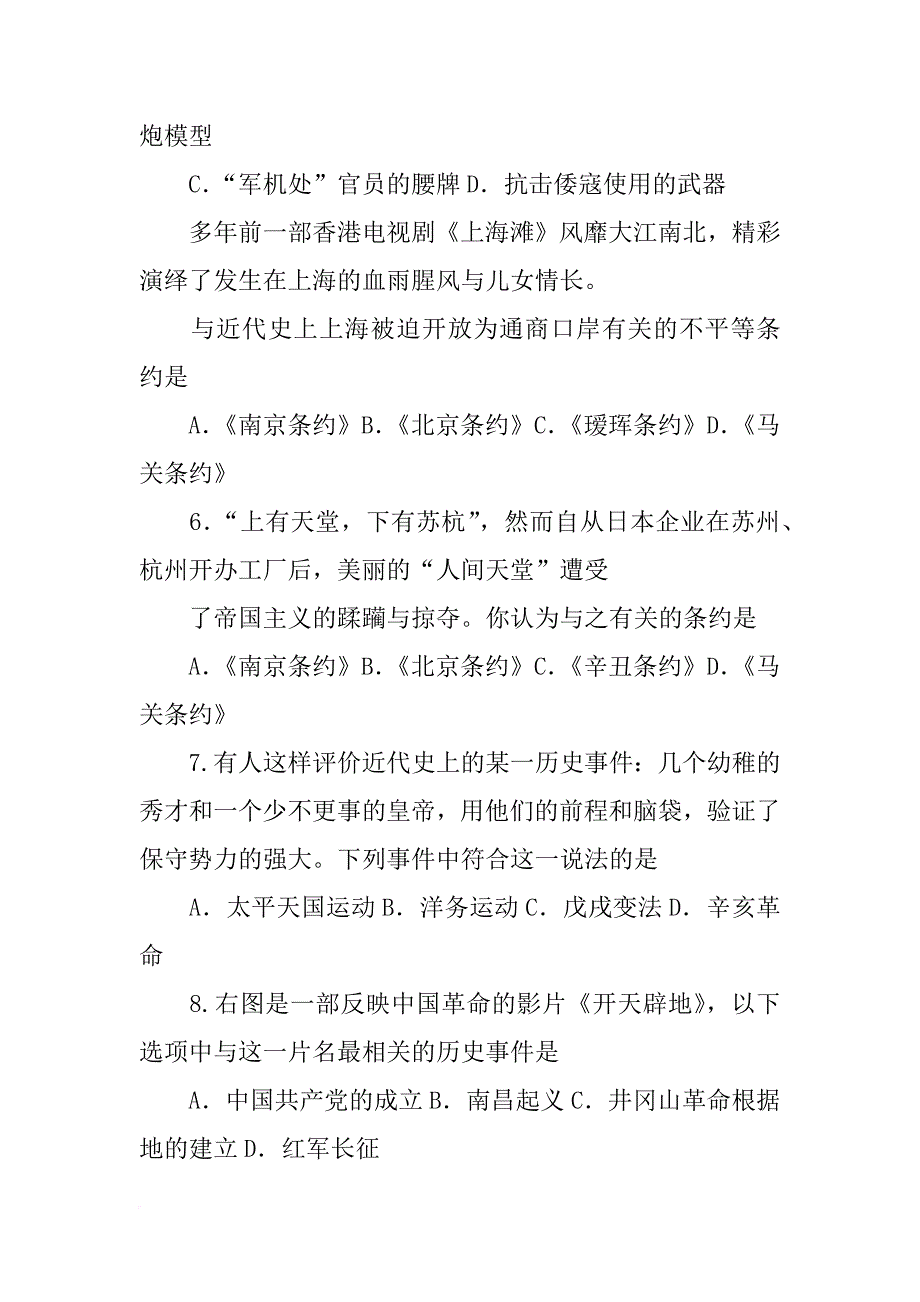 炮模型
C．“军机处”官员的腰牌D．抗击倭寇使用的武器
多年前一部香港电视剧《上海滩》风靡大江南北，精彩
演绎了发生在上海的血雨腥风与儿女情长。
与近代史上上海被迫开放为通商口岸有关的不平等条
约是
A．《南京条约》B．《北京条约》C．《瑷珲条约》D．《马
关条约》
6．“上有天堂，下有苏杭”，然而自从日本企业在苏州、
杭州开办工厂后，美丽的“人间天堂”遭受
了帝国主义的蹂躏与掠夺。你认为与之有关的条约是
A．《南京条约》B．《北京条约》C．《辛丑条约》D．《马
关条约》
7.有人这样评价近代史上的某一历史事件：几个幼稚的
秀才和一个少不更事的皇帝，用他们的前程和脑袋，验证了
保守势力的强大。下列事件中符合这一说法的是
A．太平天国运动B．洋务运动C．戊戌变法D．辛亥革
命
8.右图是一部反映中国革命的影片《开天辟地》，以下
选项中与这一片名最相关的历史事件是
A．中国共产党的成立B．南昌起义C．井冈山革命根据
地的建立D．红军长征